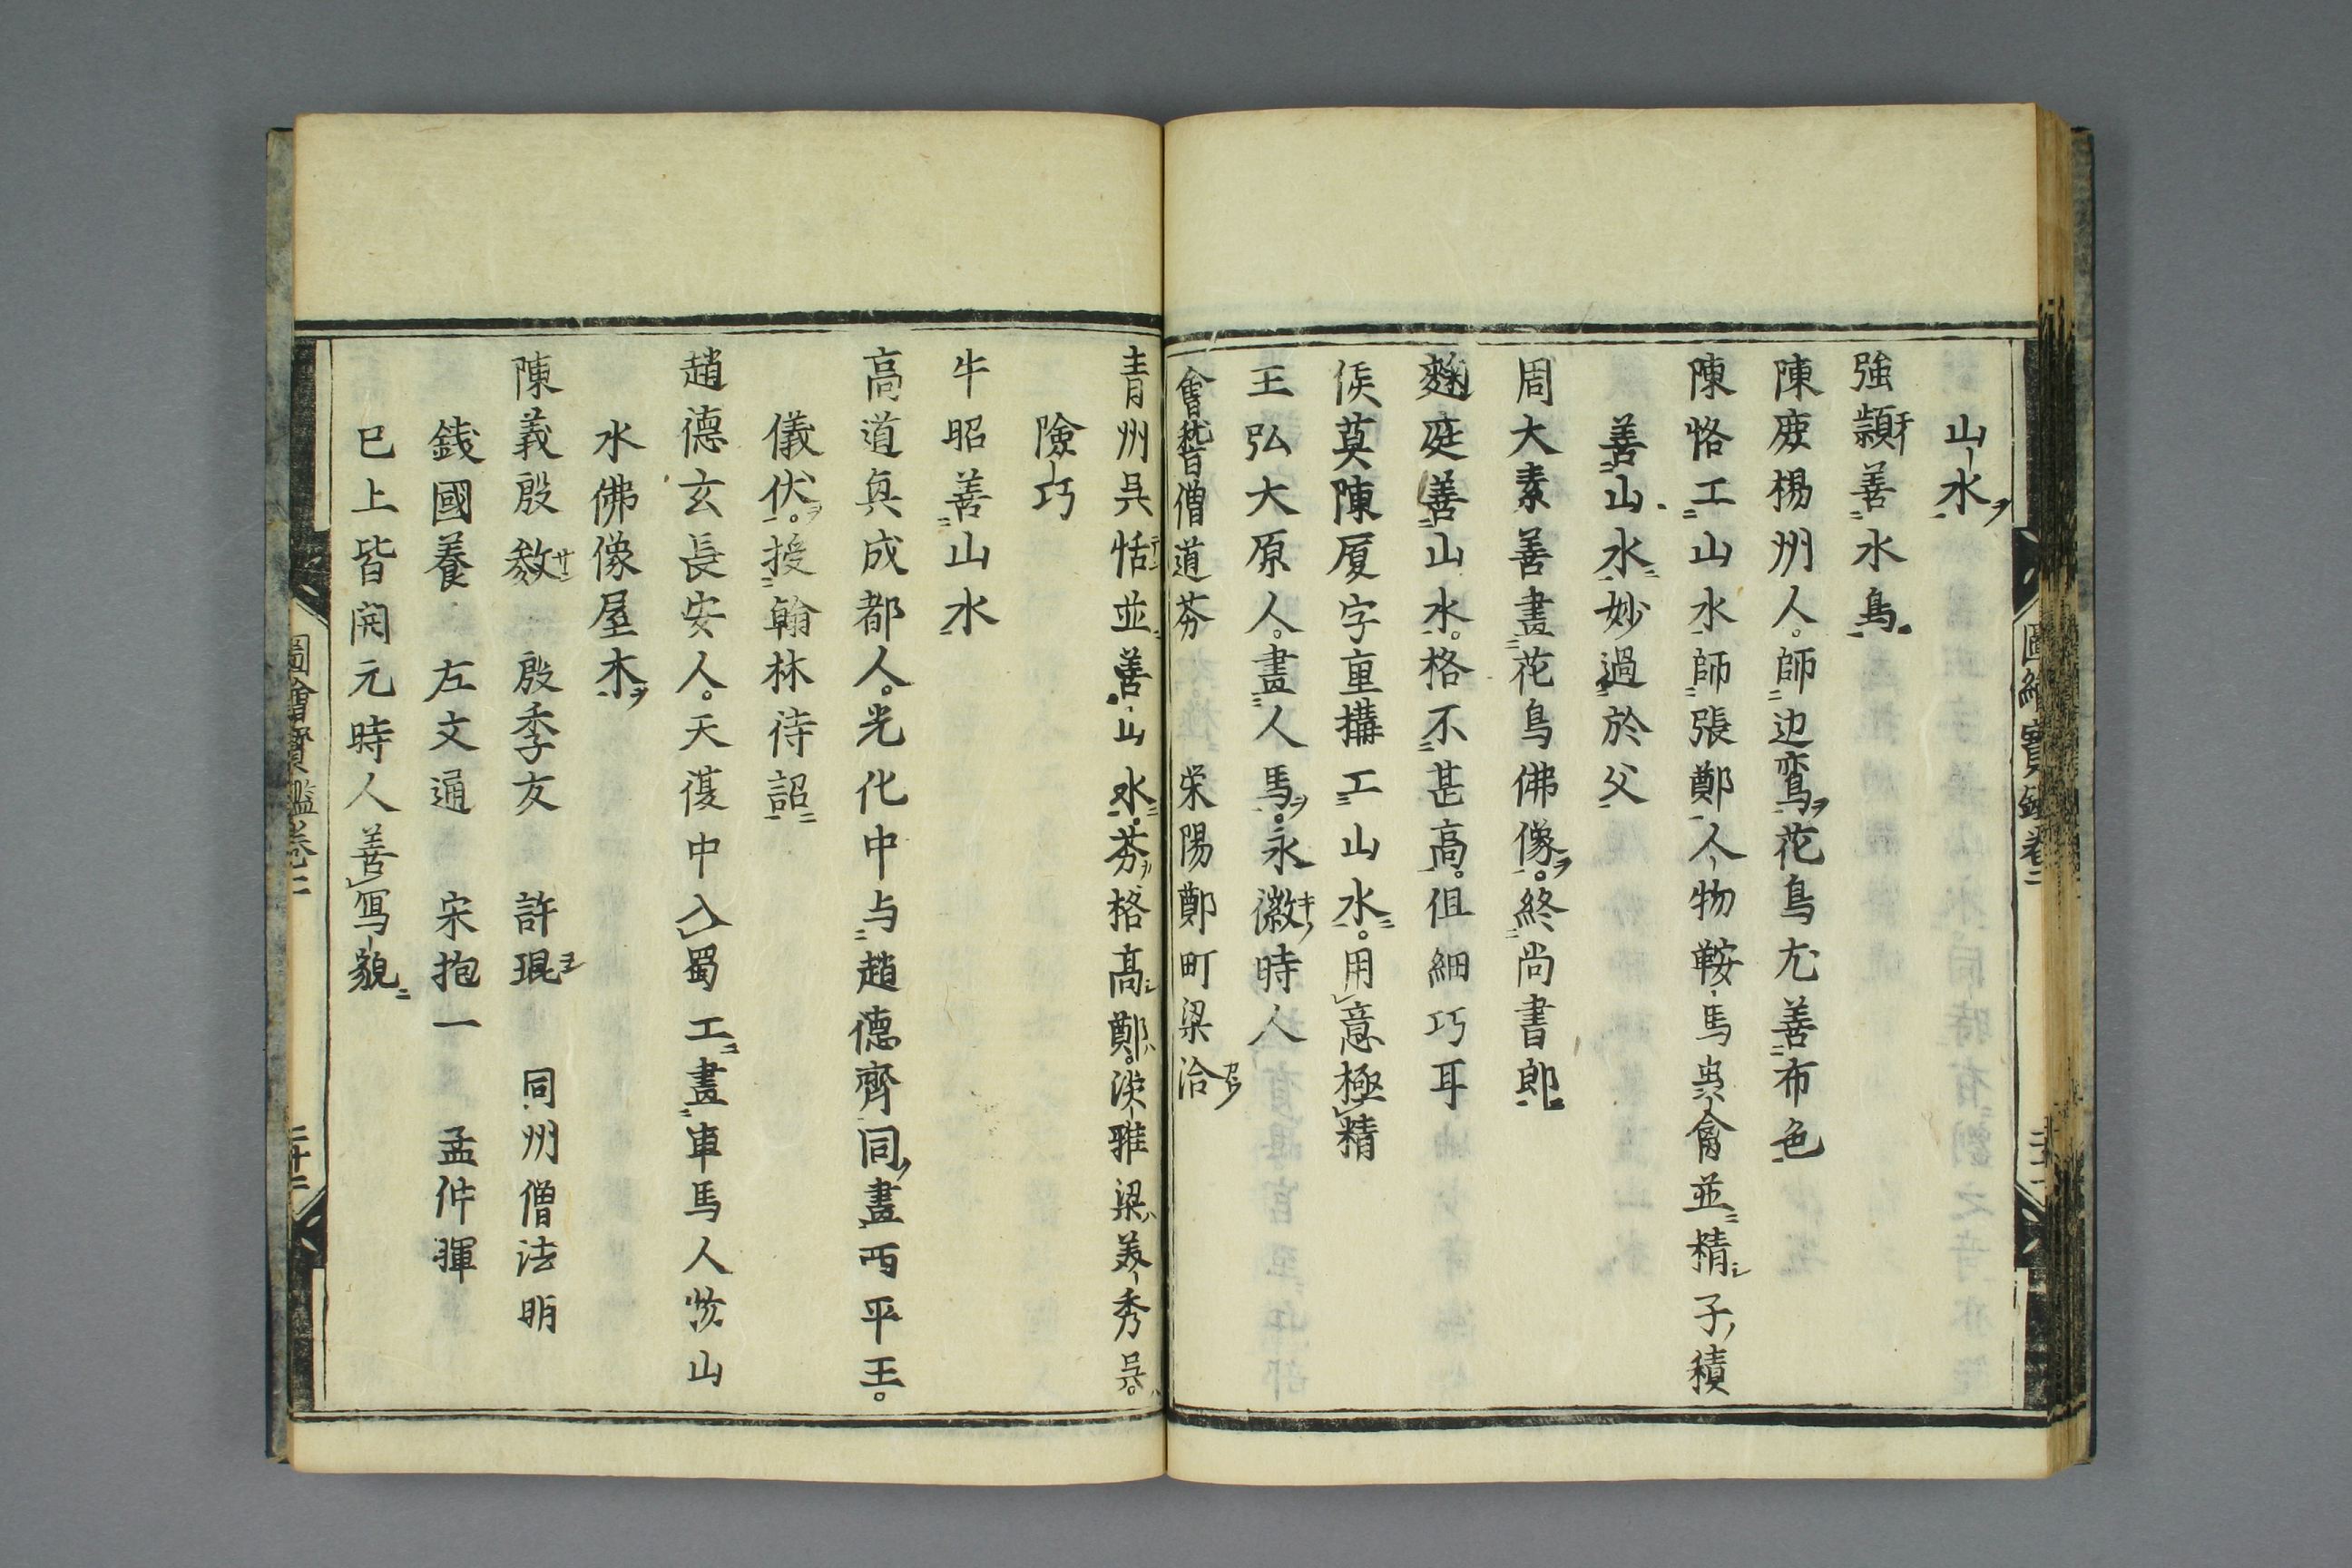 山水ヲ
強頴善水鳥
陳庶楊州人。師边鸞ヲ花鳥尤善布色
陳恪工山水師張鄭人物鞍馬䖝禽並精シ子積
善山水ニ妙過於父
周大素善畫花鳥佛像ヲ。終尚書郎
麹庭善山水。格不甚高。但細巧耳
侯莫陳厦字重搆工山水ニ。用意極精
王弘大原人。畫人馬ヲ。永徽キ時人
會稽僧道芬 栄陽鄭町梁洽
青州呉恬並善山水ニ。芬ガ格高シ鄭ハ。淡雅梁ハ美秀呉ハ。
險巧
牛昭善山水
高道興成都人。光化中与趙德齊同畫西平王。
儀伏ヲ。授翰林待詔ニ
趙德玄長安人。天復中入蜀工畫車馬人物山
水佛像屋木ヲ
陳義殷敫 殷季友 許琨 同州僧法明
錢國養 左文通 宋抱一 孟仲暉
已上皆開元時人善寫貌ニ
圖繪寶鑑卷二
圖繪寶鑑卷二 二十二